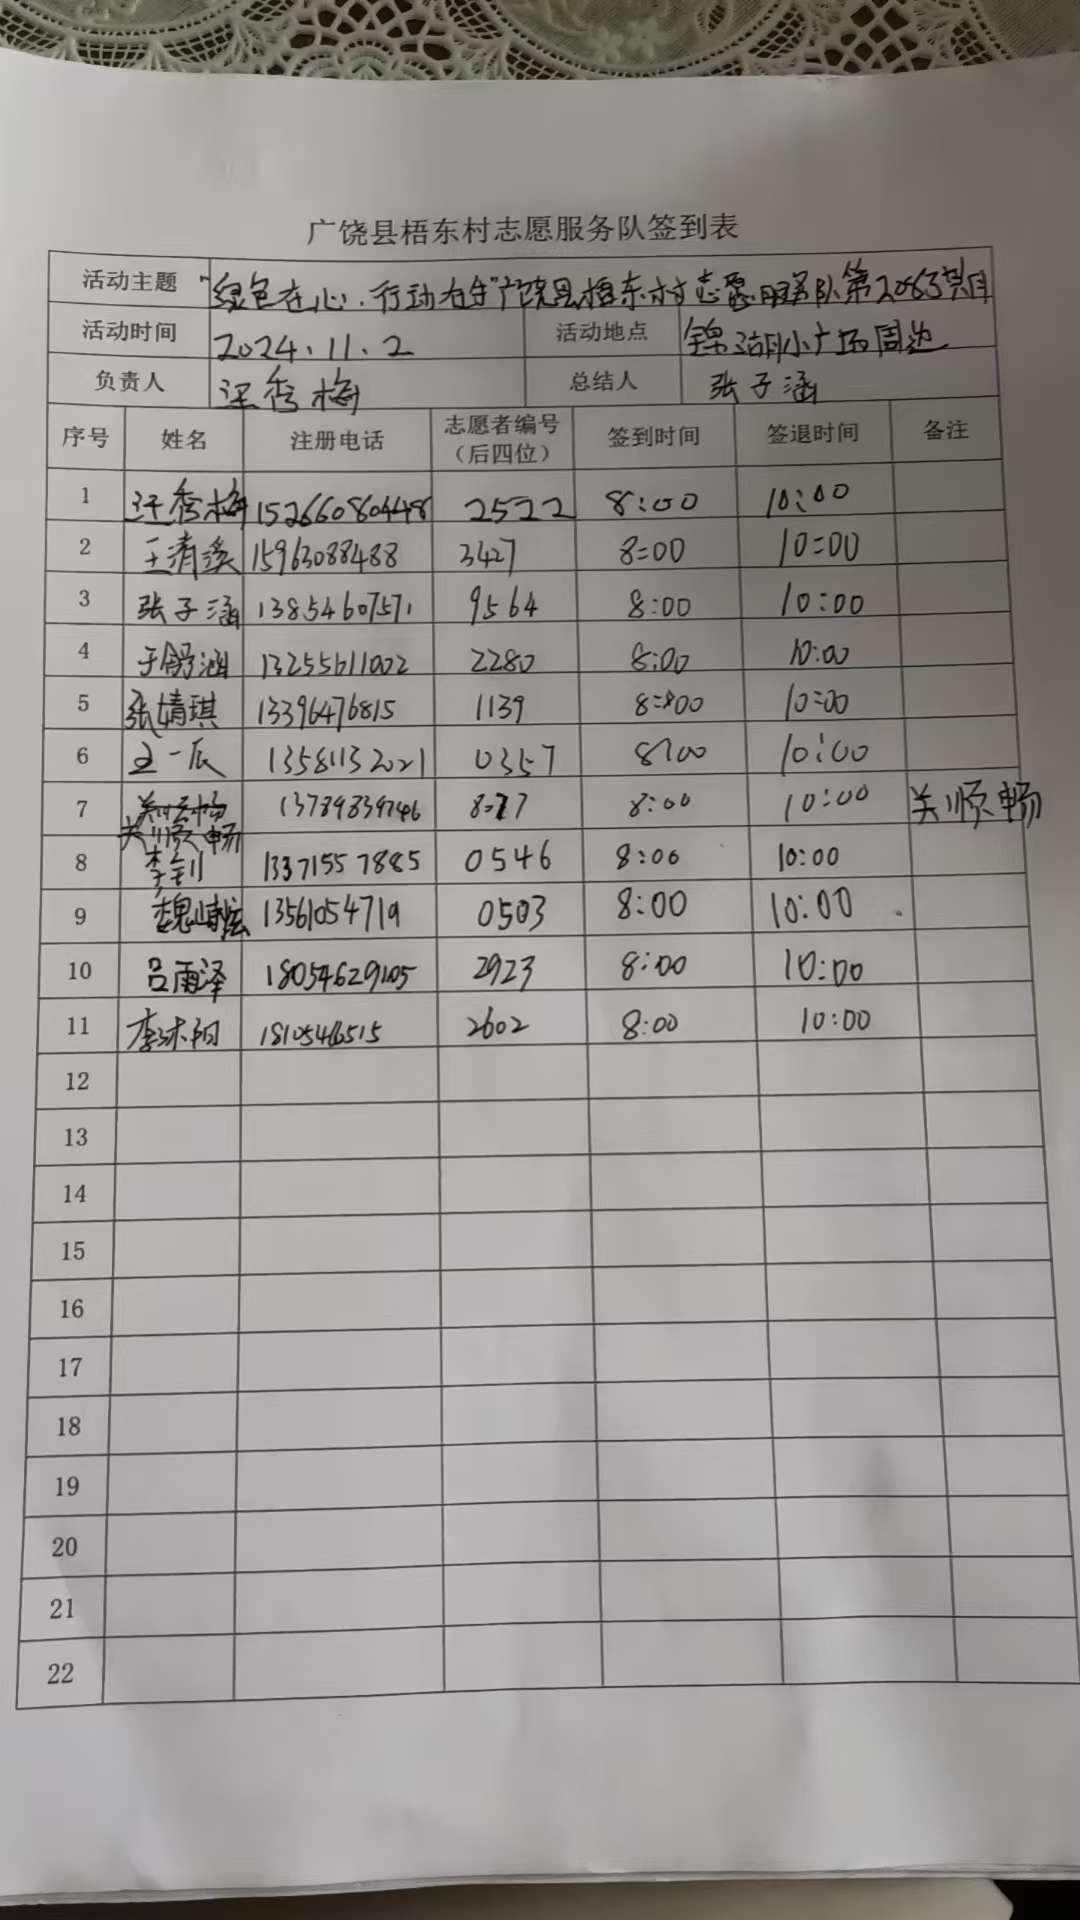 广饶县梧东村志愿服务队签到表
活动主题 "绿色在心·行动在手"广饶县梧东村志愿服务队第2063期
活动时间 2024.11.2 活动地点 锦湖小广场周边
负责人 汪秀梅 总结人 张子涵
序号 姓名 注册电话 志愿者编号（后四位） 签到时间 签退时间 备注
1 汪秀梅 15266080448 2522 8:00 10:00
2 王清溪 15963088488 3427 8:00 10:00
3 张子涵 13854607571 9564 8:00 10:00
4 于舒涵 13255611002 2280 8:00 10:00
5 张婧琪 13396476815 1139 8:00 10:00
6 王一辰 13581132021 0357 8:00 10:00
7 关顺畅 13789839746 8:00 10:00 关顺畅
8 李钊 13371557885 0546 8:00 10:00
9 13561054719 0503 8:00 10:00
10 吕雨泽 18054629105 2923 8:00 10:00
11 李沐阳 1810546515 2602 8:00 10:00
12
13
14
15
16
17
18
19
20
21
22